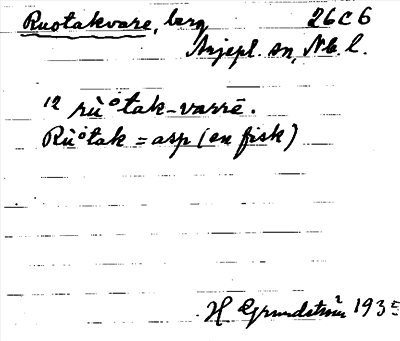 Ruotakvare, berg 26C6
Arjepl. sn, Nb. l.
12 rùotak-varrē.
Rùotak = asp (en fisk)
H Grundström 1935